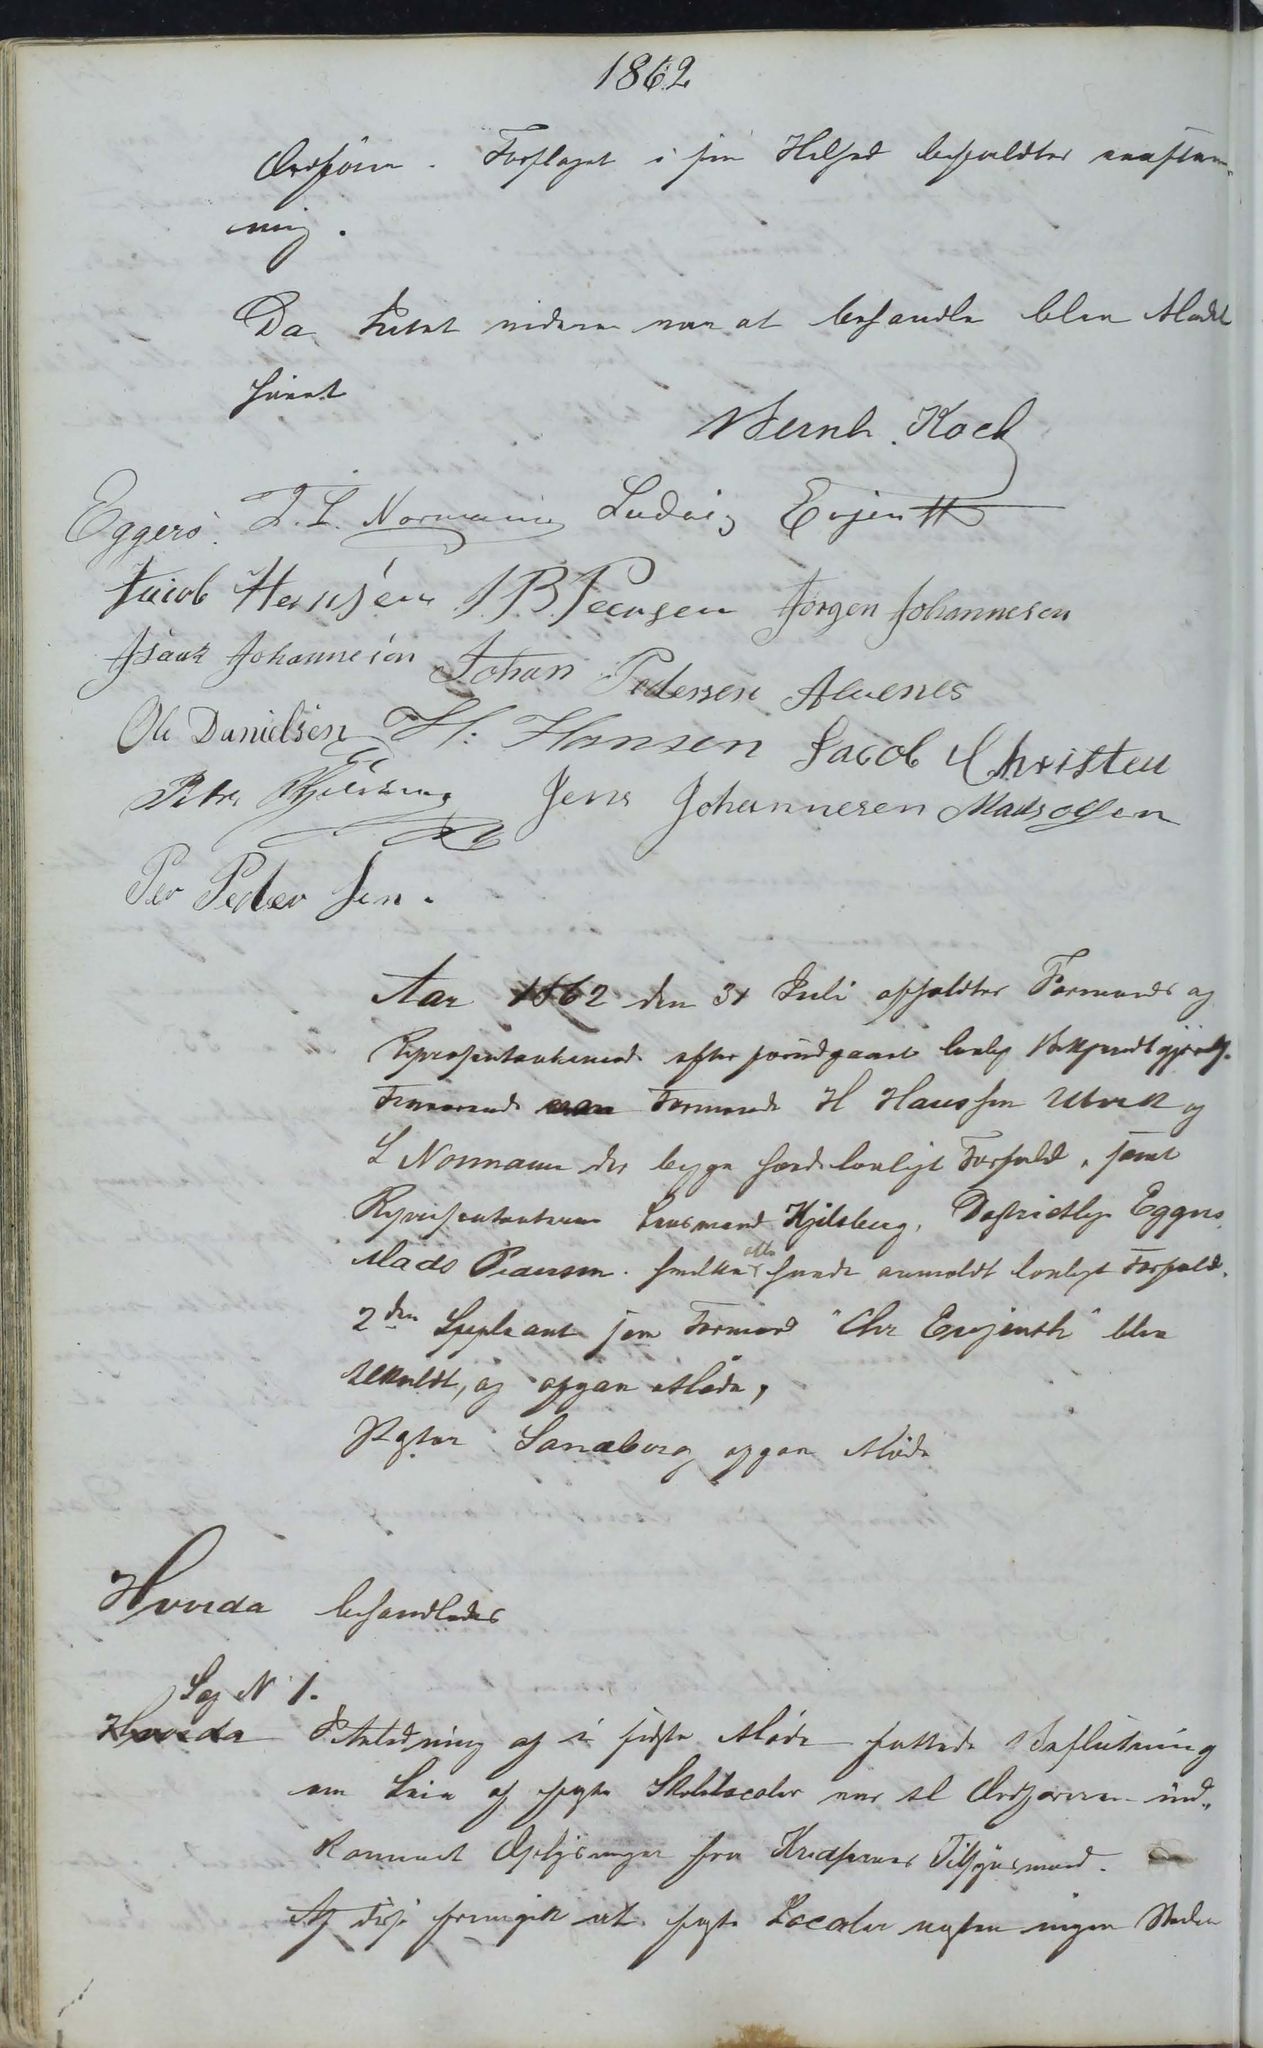 1862
Ordføren. Forslaget i sin Helhed besluttes eenstem-
mig.
Da Intet videre var at behandle blev Mødet
hævet
Bernh. Koch
Eggers. L. L. Normann Ludvig Evjenth
Jacob Hansen P. B. Peersen Jørgen Johannesen
Isak Johannesen Johan Pedersen Alvenes
Ole Danielsen H. Hansen Jacob Christen
Petr. Kjelsberg Jens Johannesen Mads Olsen
Per Peder sen.
Aar 1862 den 31 Juli afholdtes Formands og
Repræsentantmøde efter forudgaaet lovlig Bekjendtgjørelse.
Fraværende Formænd H Hanssen Utvik og
L Normann der begge havde lovligt Forfald, samt
Repræsentanterne Lensmand Kjelsberg, Distriktslæge Eggers
Mads Pedersen. hvilke alle havde anmeldt lovligt Forfald.
2den Suppleant som Formand "Chr Evjenth" blev
tilkaldt, og afgav Møde,
Pastor Sandberg afgav Møde
Hvorda behandledes
Sag N 1.
I Anledning af i sidste Møde fattede Beslutning
om Leie af faste Skolelocaler var til Ordføreren ind-
kommet Oplysninger fra Kredsernes Tilsynsmænd.
Af disse fremgik at faste Localer næsten ingen Steder